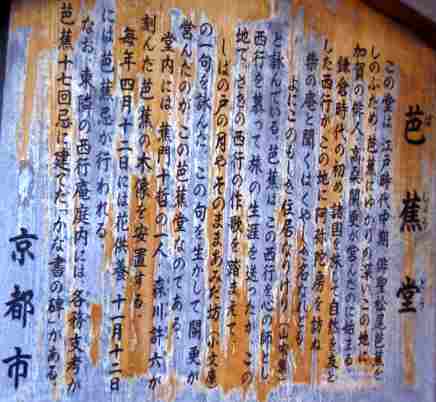 芭蕉堂
ばしょうどう
この堂は、江戸時代中期、俳聖松尾芭蕉を
しのぶため、芭蕉にゆかりの深いこの地に、
加賀の俳人、高桑闌更が営んだのに始まる。
鎌倉時代の初め、諸国を旅して自然を友と
した西行が、この地に阿弥陀房を訪ね
柴の庵と聞くはくやしき名なれども
よにこのもしき住居なりけり(山家集)
と詠んでいる。芭蕉は、この西行を心の師とし、
西行を慕って旅の生涯を送ったが、この
地で、さきの西行の作歌を踏まえて
しばの戸の月やそのままあみだ坊(小文庫)
の一句を詠んだ。この句を生かして闌更が
営んだのが、この芭蕉堂なのである。
堂内には、蕉門十哲の一人、森川許六が
刻んだ芭蕉の木像を安置する。
毎年四月十二日には花供養、十一月十二日
には芭蕉忌が行われる。
なお、東隣の西行庵庭内には、各務支考が
芭蕉十七回忌に建てた「かな書の碑」がある。
京都市